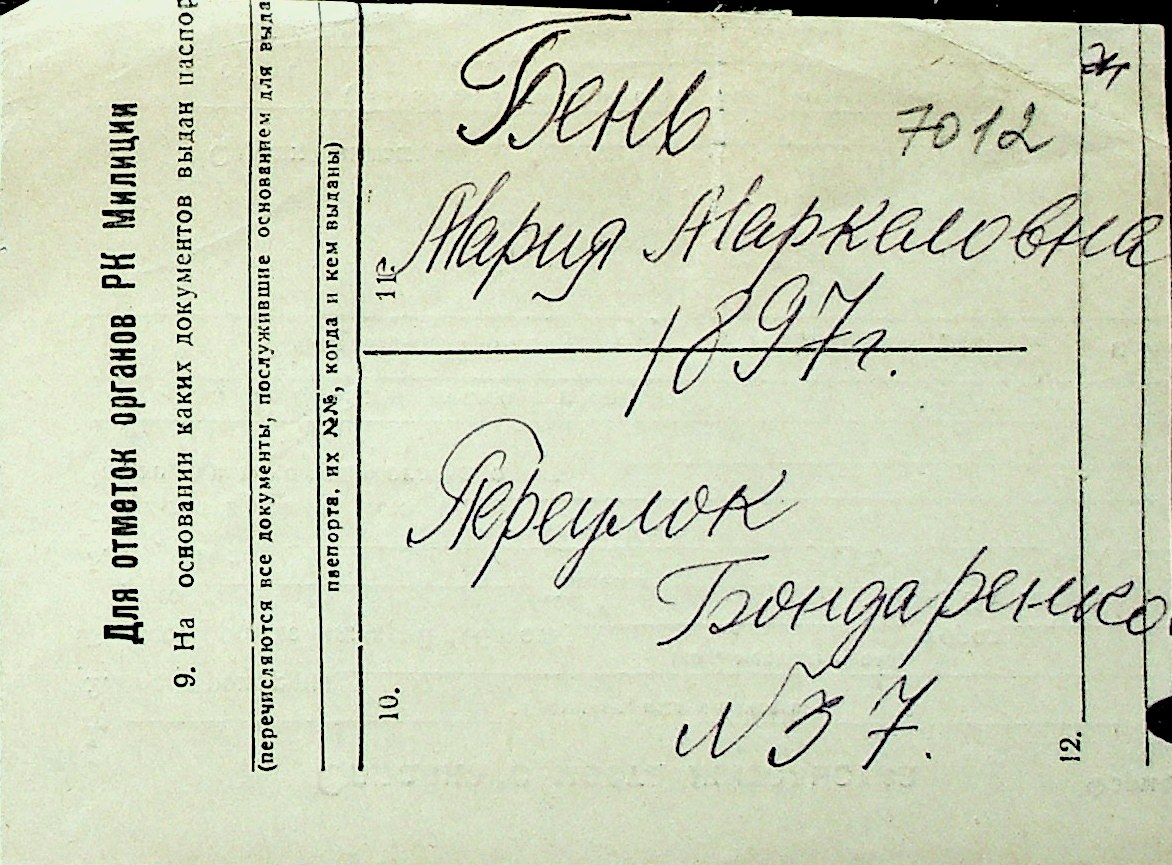 Для отметок органов РК Милиции
9. На основании каких документов выдан паспор
(перечисляются все документы, послужившие основанием для выда
паспорта, их №№, когда и кем выданы)
10.
11.
12.
Бень 7012
Мария Маркаловна
1897г.
Переулок
Бондаренко
№37.